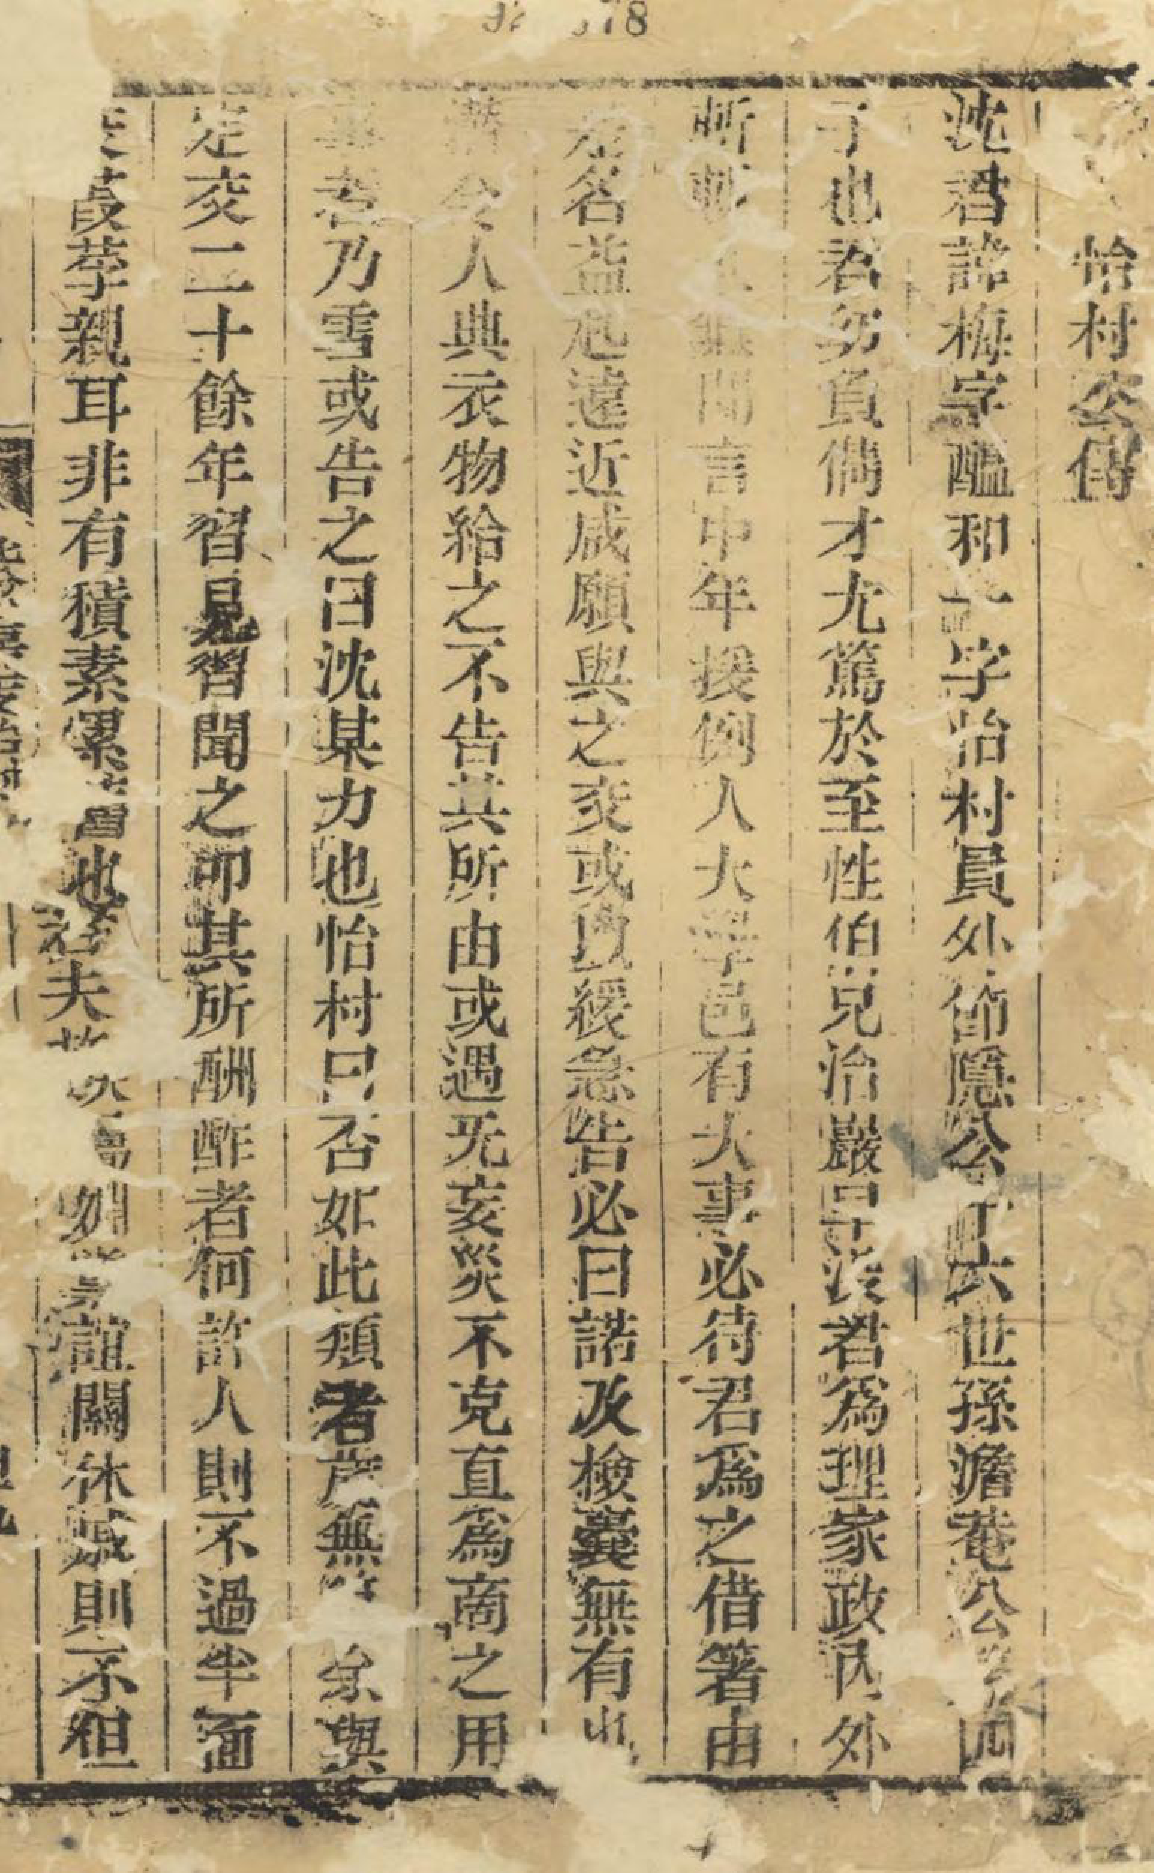 怡村公傳
沈君諱梅字醖和一字怡村員外節隱公六世孫澹菴公四
子也君幼負倜才尤篤於至性伯兄治嚴早沒君爲理家政內外
斬斬無間言中年援例入大學邑有大事必待君爲之借箸由
是名益起遠近咸願與之交或以緩急告必曰諾及檢囊無有也
潛令人典衣物給之不告其所由或遇旡妄災不克直爲啇之用
事者乃雪或告之曰沈某力也怡村曰否如此類者歲無 余與
定交二十餘年習見習聞之卽其所酬酢者何許人則不過半面
葭莩親耳非有積素累舊也若夫故 誼關休戚則不但